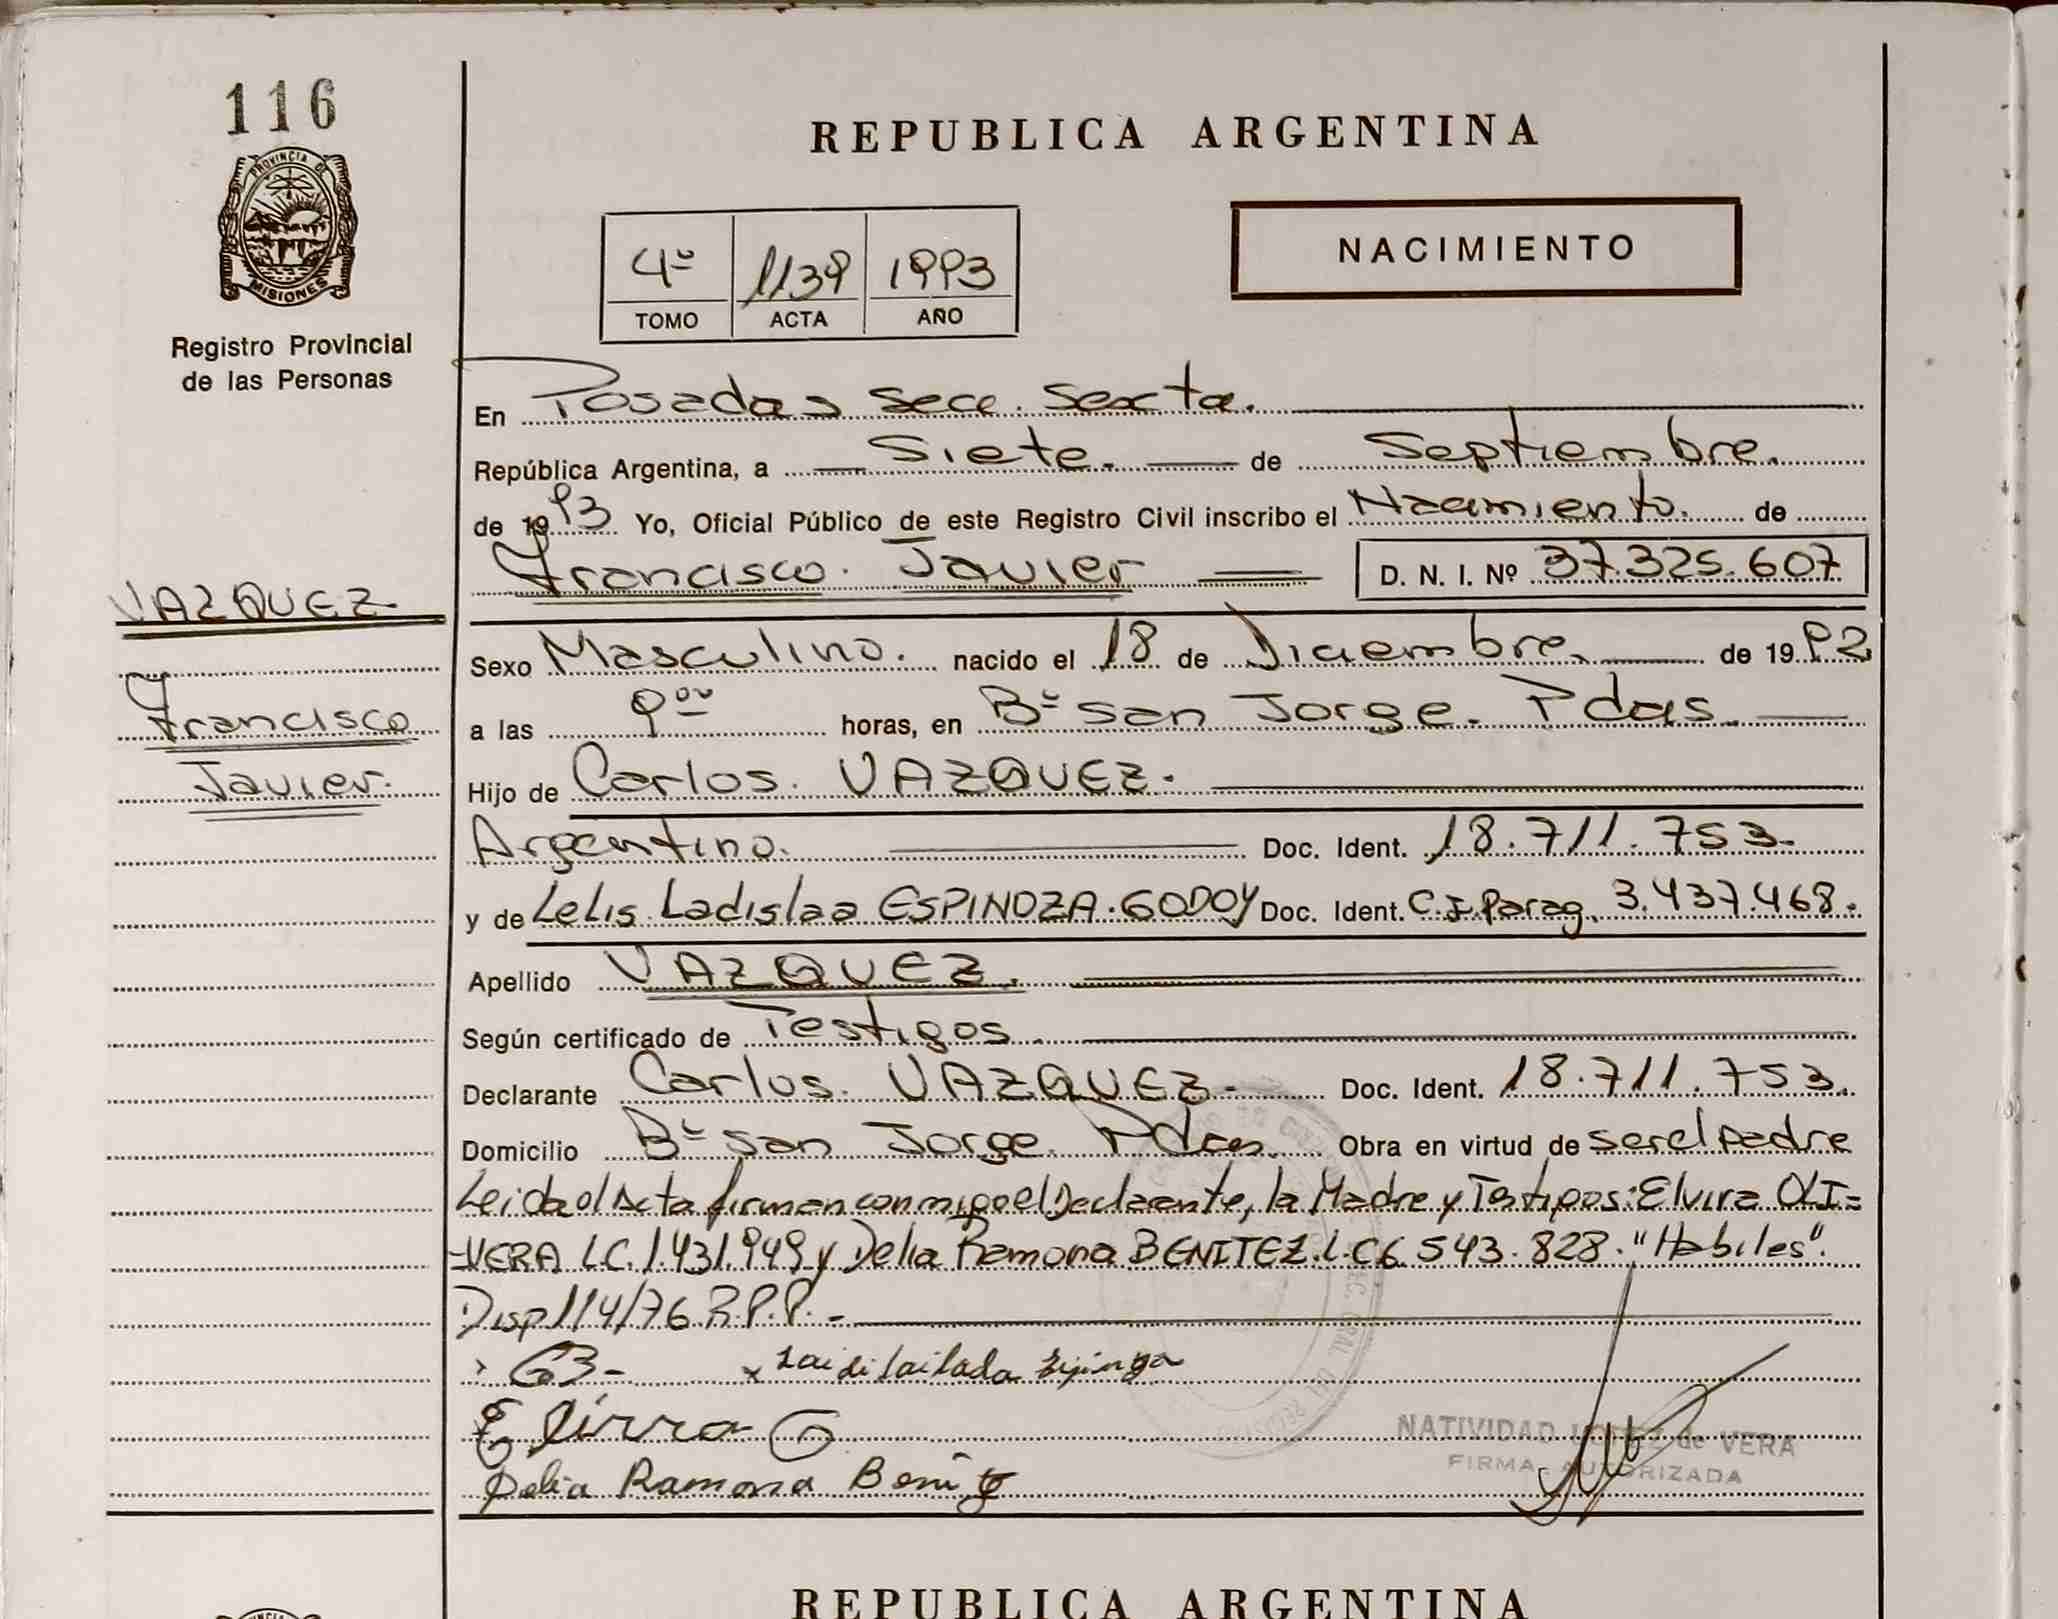 116
PROVINCIA DE
MISIONES
Registro Provincial
de las Personas
VAZQUEZ
Francisco
Javier.
REPUBLICA ARGENTINA
4º 1139 1993
TOMO ACTA AÑO
NACIMIENTO
En Posadas Secc. Sexta.
República Argentina, a Siete. de Septiembre.
de 1993 Yo, Oficial Público de este Registro Civil inscribo el Nacimiento. de
Francisco. Javier D. N. I. Nº 37.325.607
Sexo Masculino. nacido el 18 de Diciembre. de 1992
a las 9ºº horas, en Bº San Jorge. Pdas.
Hijo de Carlos. VAZQUEZ.
Argentino. Doc. Ident. 18.711.753.
y de Lelis Ladislaa ESPINOZA.GODOY Doc. Ident. C.I. Parag. 3.437.468.
Apellido VAZQUEZ.
Según certificado de Testigos.
Declarante Carlos. VAZQUEZ. Doc. Ident. 18.711.753.
Domicilio Bº San Jorge. Pdas. Obra en virtud de ser el padre
Leida el Acta firman conmigo el Declarante, la Madre y Testigos: Elvira OLI=
-VERA L.C. 1.431.949 y Delia Ramona BENITEZ. L.C 6.543.828. "Habiles".
Disp 114/76 R.P.P. -
Elvira
Delia Ramona
NATIVIDAD LOPEZ de VERA
FIRMA AUTORIZADA
REPUBLICA ARGENTINA